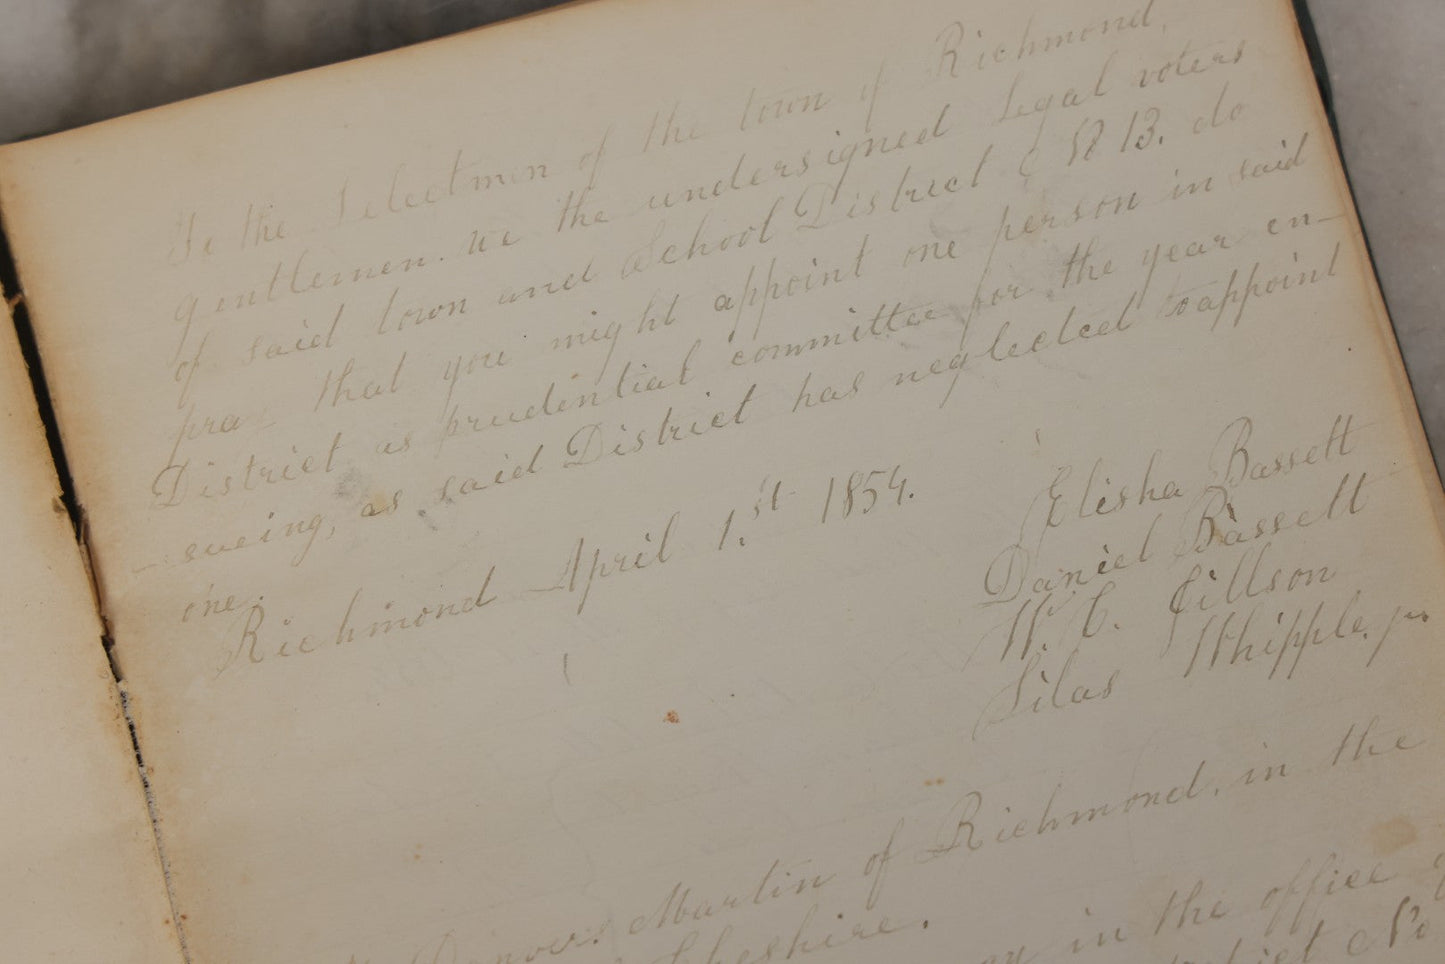 To the Selectmen of the town of Richmond,
gentlemen. we the undersigned legal voters
of said town and School District No 13. do
pray that you might appoint one person in said
District as prudential committee for the year en-
sueing, as said District has neglected to appoint
one.
Richmond April 1.st 1854.
Elisha Bassett
Daniel Bassett
W. C. Jillson
Silas Whipple. jr.
Danvers Martin of Richmond, in the
Cheshire.
in the office
District No